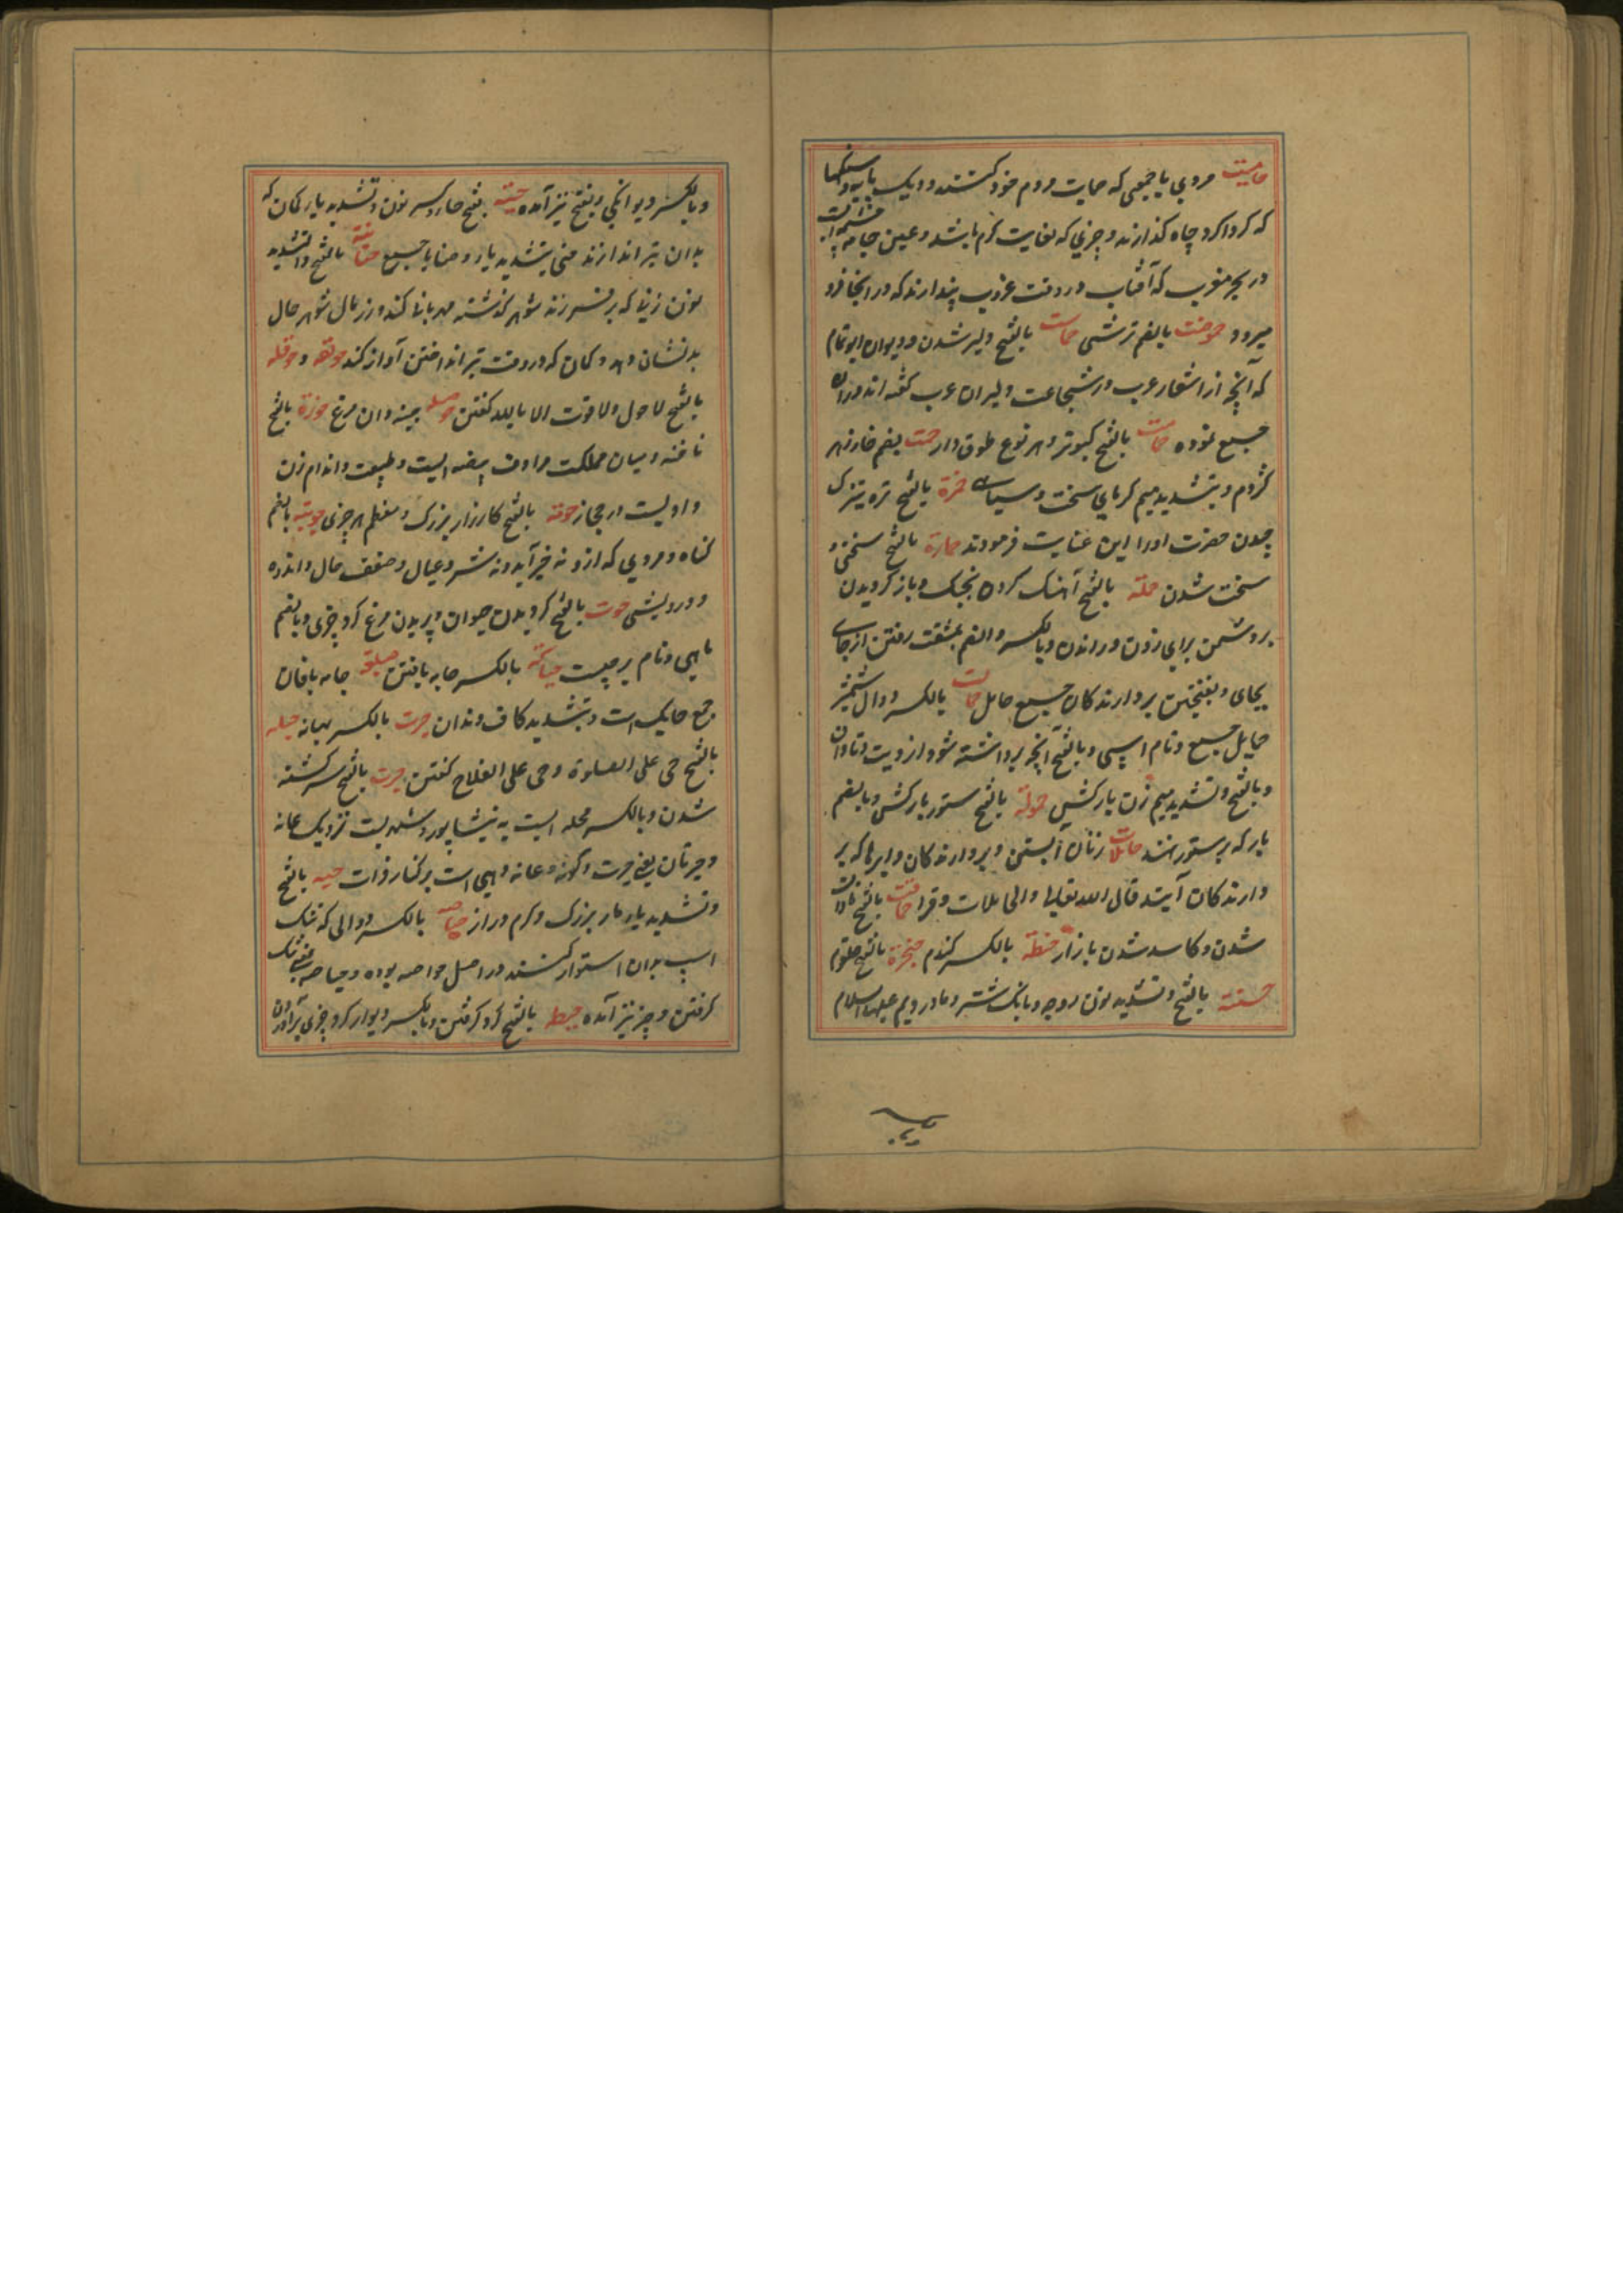 حامیت مردی یا جمعی که حمایت مردم خود کنند و دیک پایه و سنکها
که کرداکرد چاه کذارند و چیزی که بغایت کرم باشد و عین حامیه چشمه ایست
در بحر مغرب که آفتاب در وقت غروب پندارند که در آنجا فرو
میرود حموضت بالضم ترشی حماست بالفتح دلیر شدن و دیوان ابو تمام
که آنچه از اشعار عرب در شجاعت دلیران عرب کفته اند در آن
جمیع نموده حمامت بالفتح کبوتر و هر نوع طوق دار حمت بضم خا زهر
کژدم و بتشدید میم کرمای سخت و سیاهی حمزة بالفتح تره تیزک
چون حضرت او را این عنایت فرمودند حمارة بالفتح سختی و
سخت شدن حملة بالفتح آهنک کردن بجنک و باز کردیدن
بر دشمن برای زدن و راندن و بالکسر و الضم بمشقت رفتن از جای
بجای و بفتحتین بردارندکان جمیع حامل حمالت بالکسر دوال شمشیر
حمایل جمیع و نام اسپی و بالفتح آنچه برداشته شود از دیت و تاوان
و بالفتح و تشدید میم زن بارکش حمولة بالفتح ستور بارکش و بالضم
بار که بر ستور نهند حاملات زنان آبستن و بردارندکان و ابرها که بر
دارندکان آبند قال الله تعالی والحاملات وقرا حماقت بالفتح نادان
شدن و کاسد شدن بازار حنطة بالکسر کندم حنجرة بالفتح حلقوم
حنة بالفتح و تشدید نون زوجه و بانک شتر و مادر مریم علیها السلام
و بالکسر دیوانکی و بفتح نیز آمده حنیة بفتح حا و کسر نون و تشدید یا کمان که
بدان تیر اندازند حنی بتشدید یا و حنایا جمیع حنانة بالفتح و التشدید
نون زنی که بر فرزند شوهر کذشته مهربانی کند و زر مال شوهر حال
بد نشان دهد و کمان که در وقت تیر انداختن آواز کند حولقه و حوقله
بالفتح لا حول ولا قوت الا بالله کفتن حوصله چینه دان مرغ حوزة بالفتح
ناحیه و میان مملکت مرادف بیضه ایست و طبیعت و اندام زن
و ادیست در حجاز حومة بالفتح کارزار بزرک و معظم هر چیزی حوبة بالضم
کناه و مردی که ازو نه خیر آید و نه شر و عیال و ضعف حال و اندوه
و درویشی حوت بالفتح کردیدن حیوان و پریدن مرغ کرد چیزی و بالضم
ماهی و نام برجیست حیاکة بالکسر جامه بافتن جامه بافان
جمع حایک است و بتشدید کاف دندان حیرت بالکسر بهانه حیله
بالفتح حی علی الصلوة و حی علی الفلاح کفتن حیرت بالفتح سرکشته
شدن و بالکسر محله ایست به نیشاپور و شهریست نزدیک عانه
و حیرتان یعنی حیرت و کوفه و عانه دهی است بر کنار فرات حیه بالفتح
و تشدید یا مار بزرک و کرم دراز حیاصه بالکسر دوالی که تنک
اسپ بدان استوار کنند در اصل حواصه بوده و حیاصه بمعنی تنک
کرفتن و چیز نیز آمده حیطه بالفتح کرد کرفتن و بالکسر دیوار کرد چیزی برآوردن